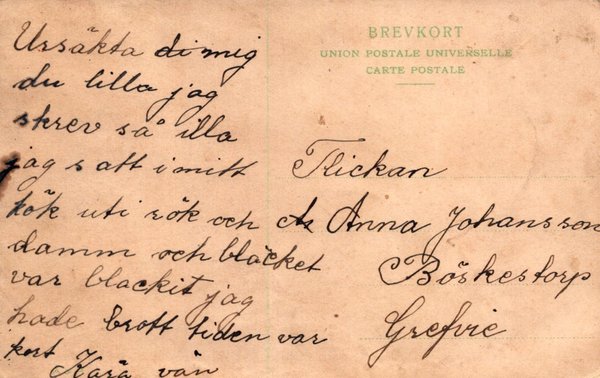 BREVKORT
UNION POSTALE UNIVERSELLE
CARTE POSTALE
Ursäkta di mig
du lilla jag
skrev så illa
jag satt i mitt
kök uti rök och
damm och bläcket
var blackit jag
hade brott tiden var
kort Kära vän
Flickan
Anna Johansson
Böskestorp
Grefvie